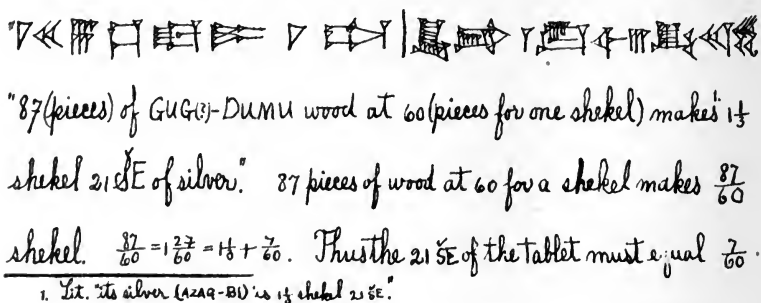 "87(pieces) of GUG(?)-DUMU wood at 60 (pieces for one shekel) makes¹ 1⅓
shekel 21 ŠE of silver." 87 pieces of wood at 60 for a shekel makes 87/60
shekel. 87/60 = 1 27/60 = 1⅓ + 7/60. Thus the 21 ŠE of the tablet must equal 7/60.
1. Lit. "its silver (AZAG-BI) is 1⅓ shekel 21 ŠE."